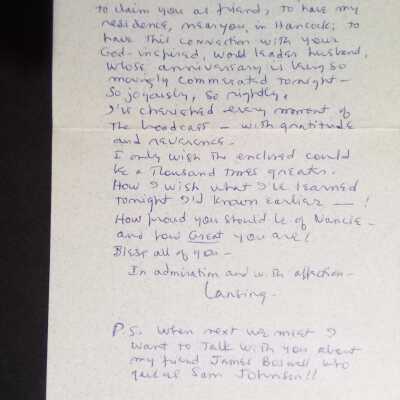 to claim you as friend, to have my
residence, near you, in Hancock; to
have this connection with your
God-inspired, world leader husband,
whose anniversary is being so
movingly commerated tonight —
So joyously, so rightly.
I've cherished every moment of
The broadcast — with gratitude
and reverence.
I only wish the enclosed could
be a Thousand Times greater.
How I wish what I've learned
tonight I'd known earlier — !
How proud you should be of Nancie —
and how Great you are!
Bless all of you —
In admiration and with affection —
Lansing.
P.S. When next we meet I
want to Talk with you about
my friend James Boswell who
Sam Johnson!!